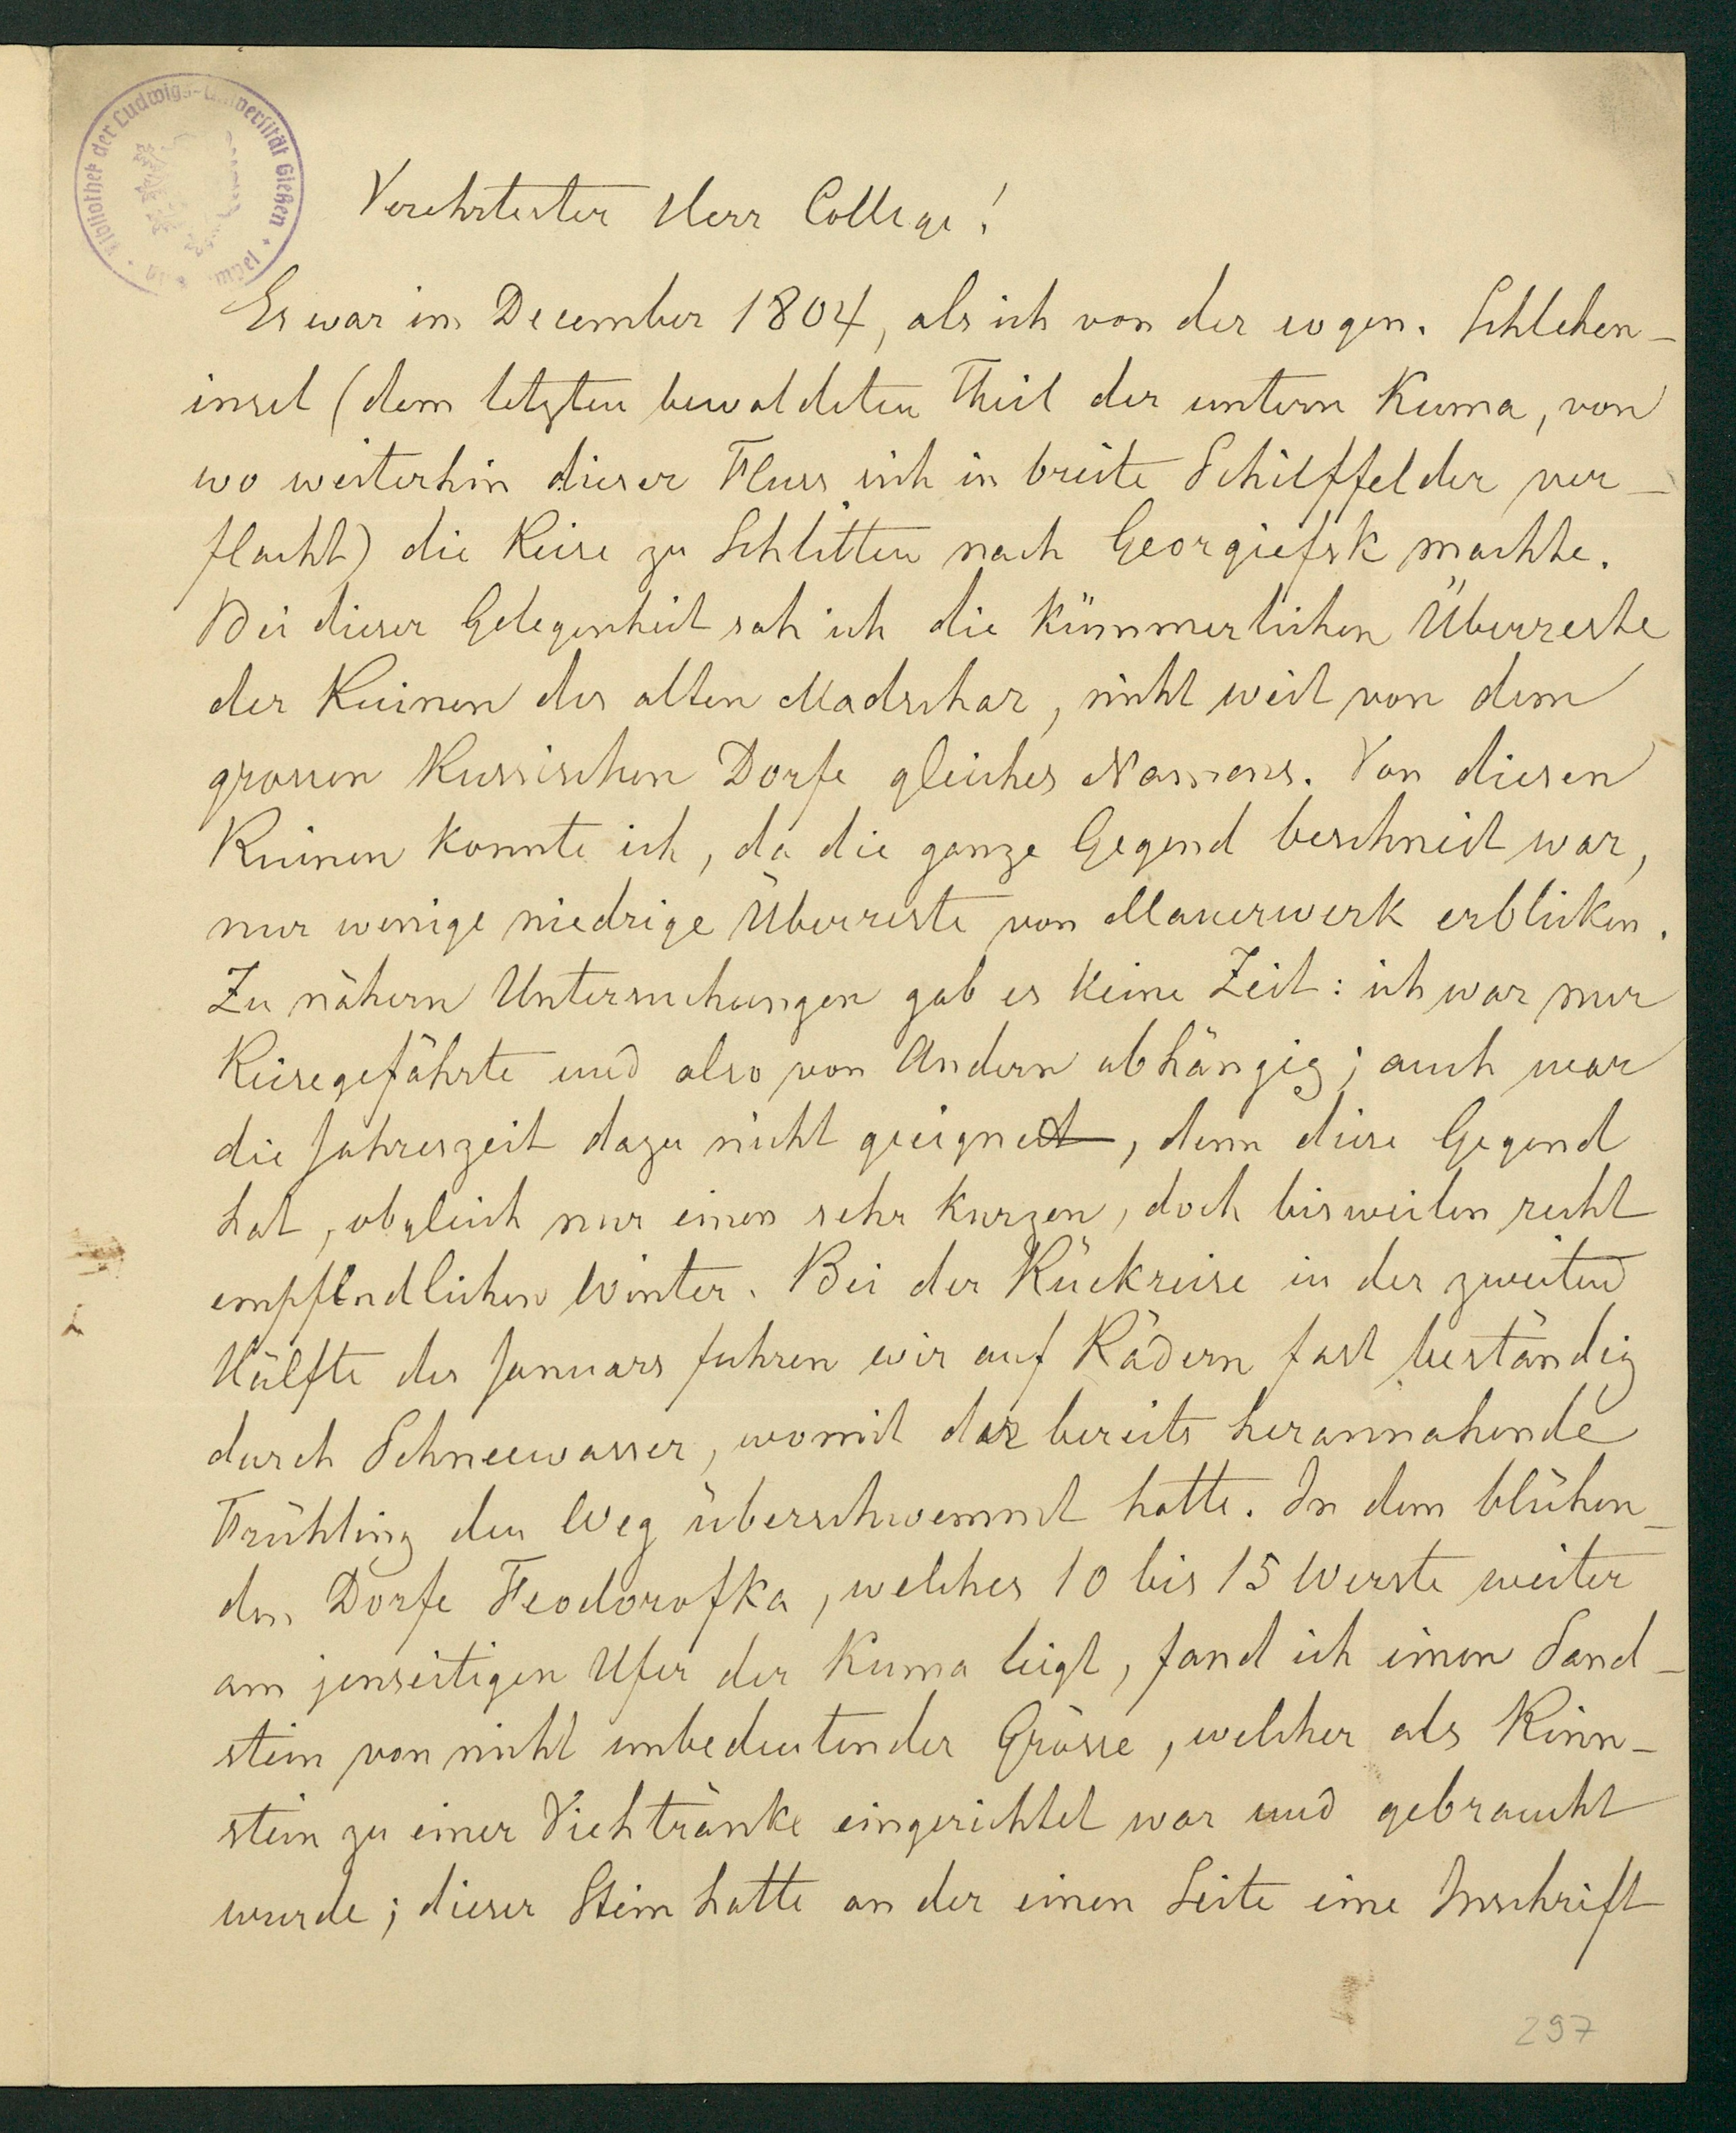 Bibliothek der Ludwigs-Universität Gießen
Verehrtester Herr College!
Es war im December 1804, als ich von der sogen. Schlehen-
insel (dem letzten bewaldeten Theil der untern Kuma, von
wo weiterhin dieser Fluss sich in breite Schilffelder ver-
flacht) die Reise zu Schlitten nach Georgiefsk machte.
Bei dieser Gelegenheit sah ich die kümmerlichen Überreste
der Ruinen des alten Madschar, nicht weit von dem
grossen Russischen Dorfe gleiches Namens. Von diesen
Ruinen konnte ich, da die ganze Gegend beschneit war,
nur wenige niedrige Überreste von Mauerwerk erblicken.
Zu nähern Untersuchungen gab es keine Zeit: ich war nur
Reisegefährte und also von Andern abhängig; auch war
die Jahreszeit dazu nicht geeignet, denn diese Gegend
hat, obgleich nur einen sehr kurzen, doch bisweilen recht
empfindlichen Winter. Bei der Rückreise in der zweiten
Hälfte des Januars fuhren wir auf Rädern fast beständig
durch Schneewasser, womit der bereits herannahende
Frühling den Weg überschwemmt hatte. In dem blühen-
den Dorfe Feodorofka, welches 10 bis 15 Werste weiter
am jenseitigen Ufer der Kuma liegt, fand ich einen Sand-
stein von nicht unbedeutender Grösse, welcher als Rinn-
stein zu einer Viehtränke eingerichtet war und gebraucht
wurde; dieser Stein hatte an der einen Seite eine Inschrift
297